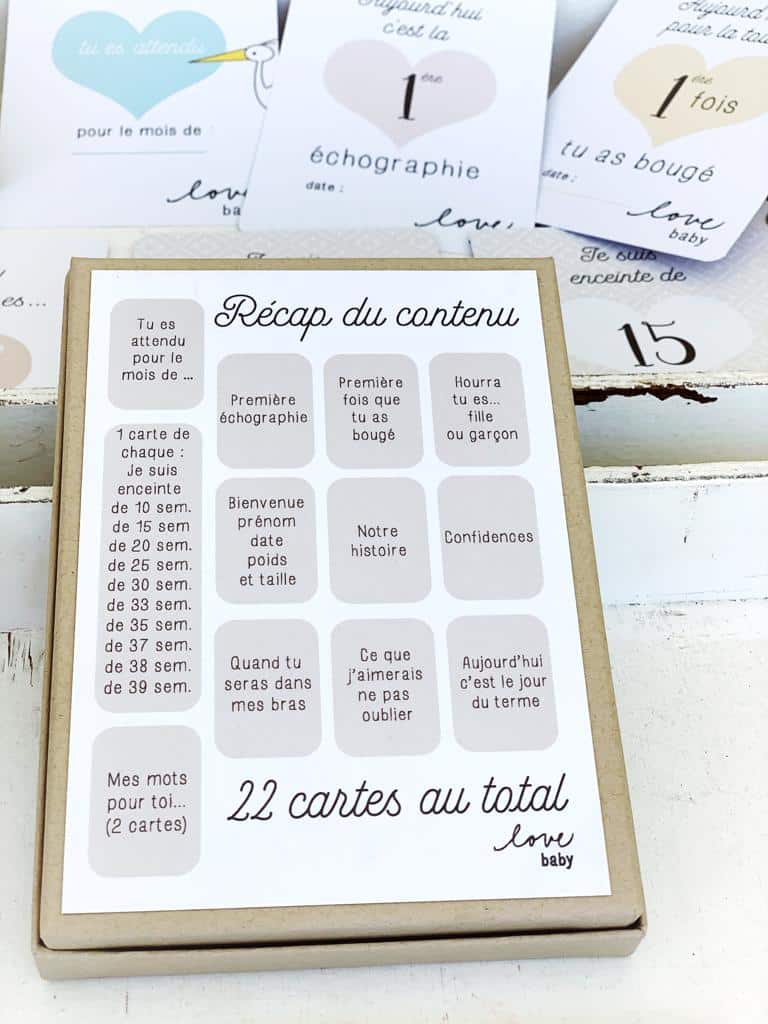 tu es attendu
pour le mois de :
love
ba
Aujourd'hui
c'est la
1ère
échographie
date :
love
Aujourd'
pour la tou
1ère
fois
tu as bougé
date :
love
baby
es...
Je suis
enceinte de
15
Récap du contenu
Tu es
attendu
pour le
mois de ...
Première
échographie
Première
fois que
tu as
bougé
Hourra
tu es...
fille
ou garçon
1 carte de
chaque :
Je suis
enceinte
de 10 sem.
de 15 sem
de 20 sem.
de 25 sem.
de 30 sem.
de 33 sem.
de 35 sem.
de 37 sem.
de 38 sem.
de 39 sem.
Bienvenue
prénom
date
poids
et taille
Notre
histoire
Confidences
Quand tu
seras dans
mes bras
Ce que
j'aimerais
ne pas
oublier
Aujourd'hui
c'est le jour
du terme
Mes mots
pour toi...
(2 cartes)
22 cartes au total
love
baby